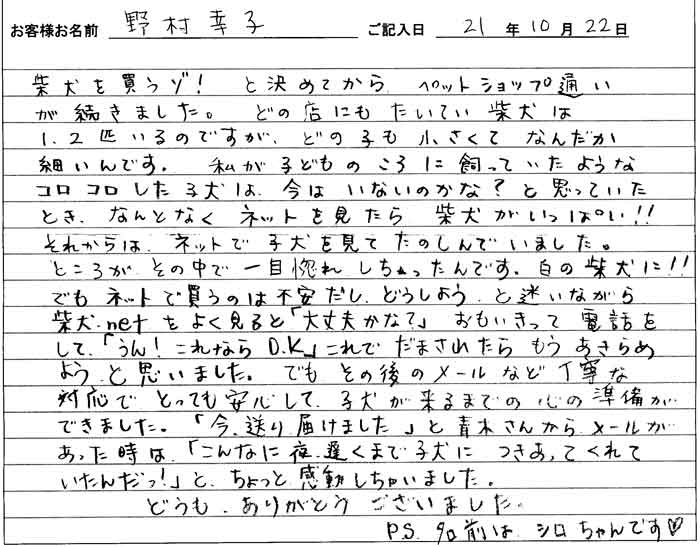 お客様お名前 野村幸子 ご記入日 21年10月22日
柴犬を買うゾ! と決めてから ペットショップ通い
が続きました。 どの店にもたいてい柴犬は
1.2匹いるのですが、どの子も小さくてなんだか
細いんです。 私が子どものころに飼っていたような
コロコロした子犬は、今はいないのかな?と思っていた
とき、なんとなくネットを見たら 柴犬がいっぱい!!
それからは、ネットで子犬を見てたのしんでいました。
ところが、その中で一目惚れしちゃったんです。白の柴犬に!!
でもネットで買うのは不安だし、どうしよう、と迷いながら
柴犬.netをよく見ると「大丈夫かな?」 おもいきって 電話を
して、「うん!これなら O.K」これで だまされたら もう あきらめ
よう、と思いました。 でも その後のメールなど丁寧な
対応で とっても安心して、子犬が来るまでの心の準備が
できました。「今、送り届けました」と青木さんからメールが
あった時は、「こんなに夜、遅くまで子犬に つきあってくれて
いたんだっ!」と、ちょっと感動しちゃいました。
どうも、ありがとう ございました。
P.S. 名前は シロちゃんです♡